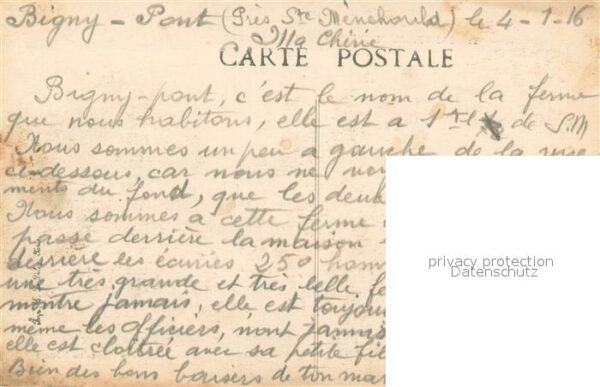 Bigny - Pont (Près Ste Ménehould) le 4-1-16
Ma Chérie
CARTE POSTALE
Bigny-pont, c'est le nom de la ferme
que nous habitons, elle est a 1 de S.M
Nous sommes un peu a gauche de la vue
ci-dessous, car nous ne
ments du fond, que les deux
Nous sommes a cette ferme
passe derrière la maison
derrière les écuries 250 hom
une très grande et très belle fe
montre jamais, elle est toujou
même les officiers, n'ont jamais
elle est cloîtrée avec sa petite fil
Bien des bons baisers de ton mar
privacy protection
Datenschutz